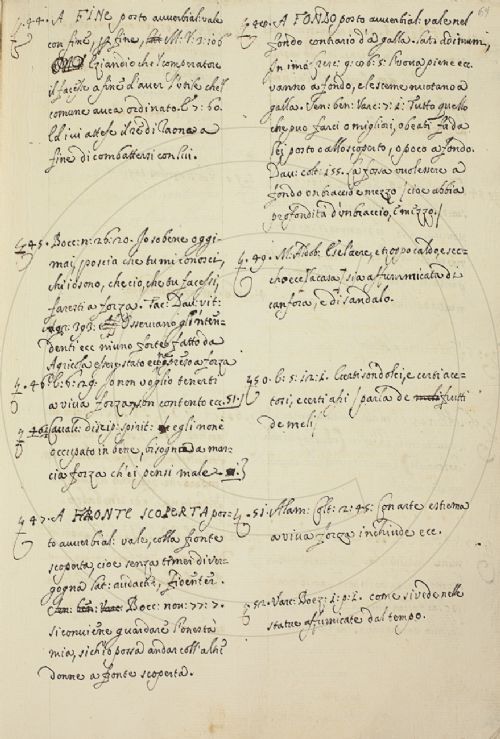 §. 44. A FINE posto avverbial: vale
con fine, per fine, M: V: 3: 106
Eziandio che 'l comperatore
il facesse a fine d'aver l'utile che 'l
comune avea ordinato. E 7: 60.
Ed ivi attese il re di Raona a
fine di combattersi con lui.
§. 45. Bocc: n: 26: 20. Io so bene oggi-
mai, poscia che tu mi conosci,
chi io sono, che ciò, che tu facessi,
faresti a forza. Tac: Dav: vit:
Agr: 398. Osservano gl'inten-
denti ecc niuno forte fatto da
Agricola essere stato preso a forza
§. 46. b: 6: 29. Io non voglio tenerti
a viva forza, son contento ec. 51.
§. 46. Cavalc: discip: spirit: e egli non è
occupato in bene, bisogna da mar-
cia forza ch'ei pensi male
§. 47. A FRONTE SCOPERTA pos-
to avverbial: vale, colla fronte
scoperta, cioè senza timer di ver-
gogna Lat: audacter, fidenter.
Bocc: nov: 77: 7.
si conviene guardare l'onestà
mia, sì ch'io possa andar coll'altre
donne a fronte scoperta.
64
§. 48. A FONDO posto avverbial: vale nel
fondo contrario d'a galla. Lat:
in imo
vanno a fondo, e le sceme nuotano a
galla. Sen: ben: Varc: 7: 1: Tutto quello
che può farci o migliori, o beati, fa da
lei posto o allo scoperto, o poco a fondo.
Dav: colt: 155. La fossa vuol essere a
fondo un braccio e mezzo / cioè abbia
profondità d'un braccio, e mezzo. /
§. 49. M: Aldob: E se l'aere, e troppo caldo, e sec-
cho ec la casa sia affummicata di
canfora, e di sandalo.
§. 50. b: 5: 12: 1. E certi son dolci, e certi ace-
tosi, e certi ahi / parla de frutti
de meli /
§. 51. Alam: Colt: 12: 45: Con arte estrema
a viva forza inchiude ecc.
§. 52. Varc: Boez: 1: p: 1. come si vede nelle
statue affumicate dal tempo.